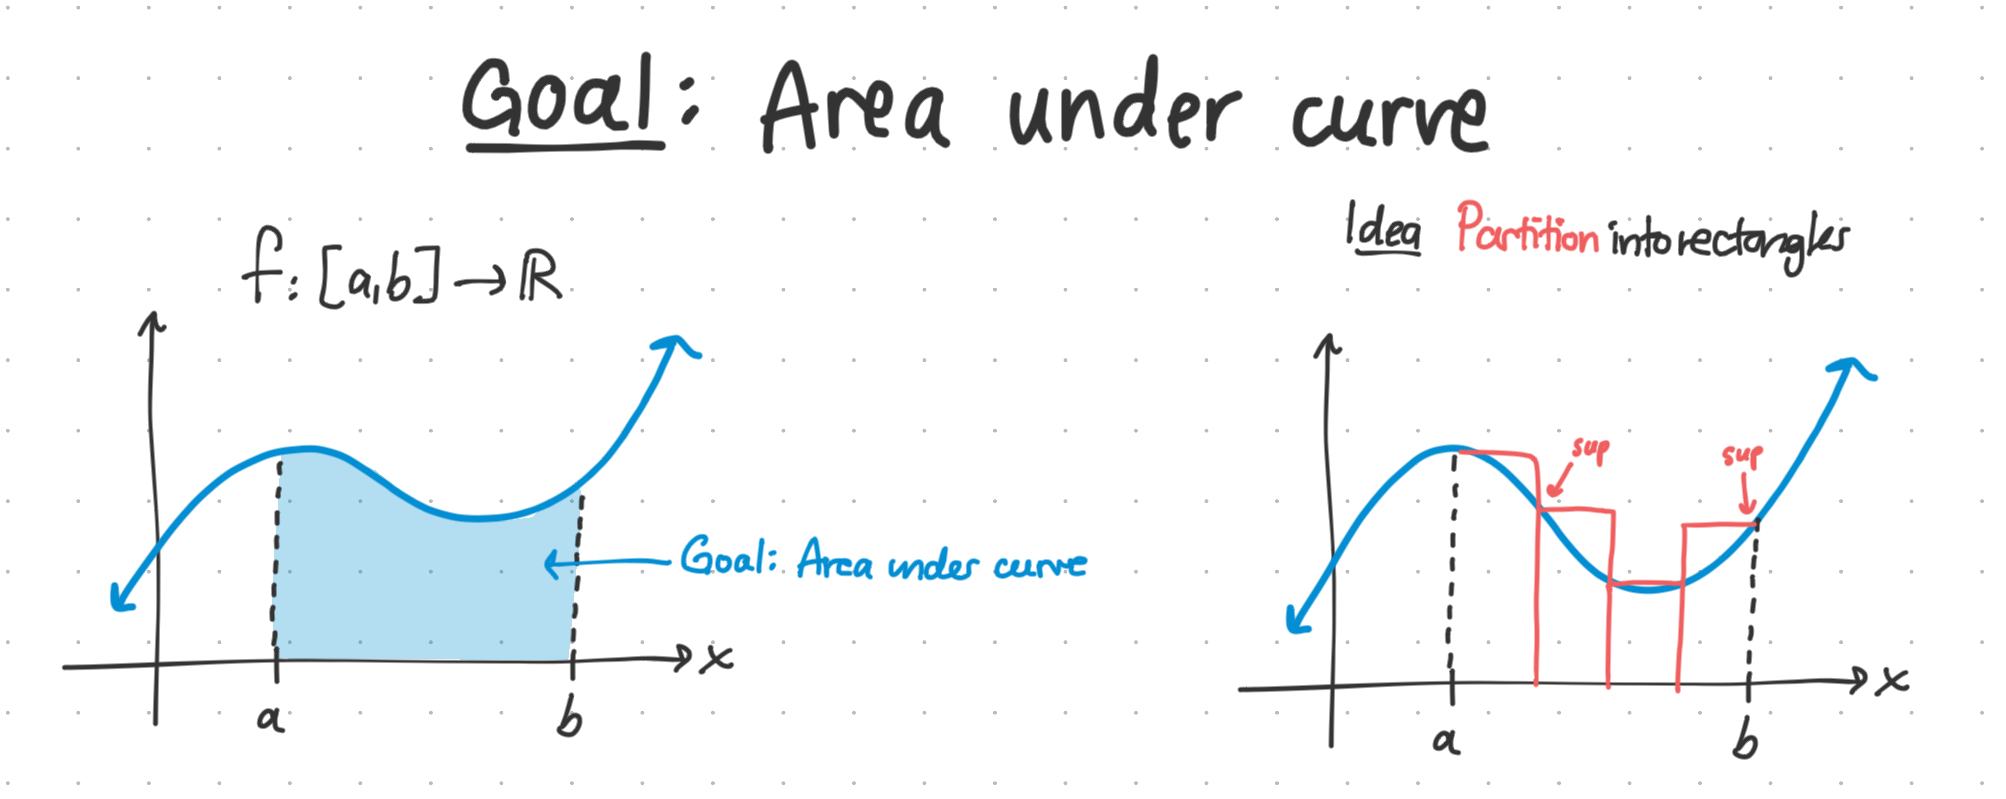 Goal: Area under curve
f: [a,b] → ℝ
Goal: Area under curve
x
a
b
Idea Partition into rectangles
sup
sup
x
a
b